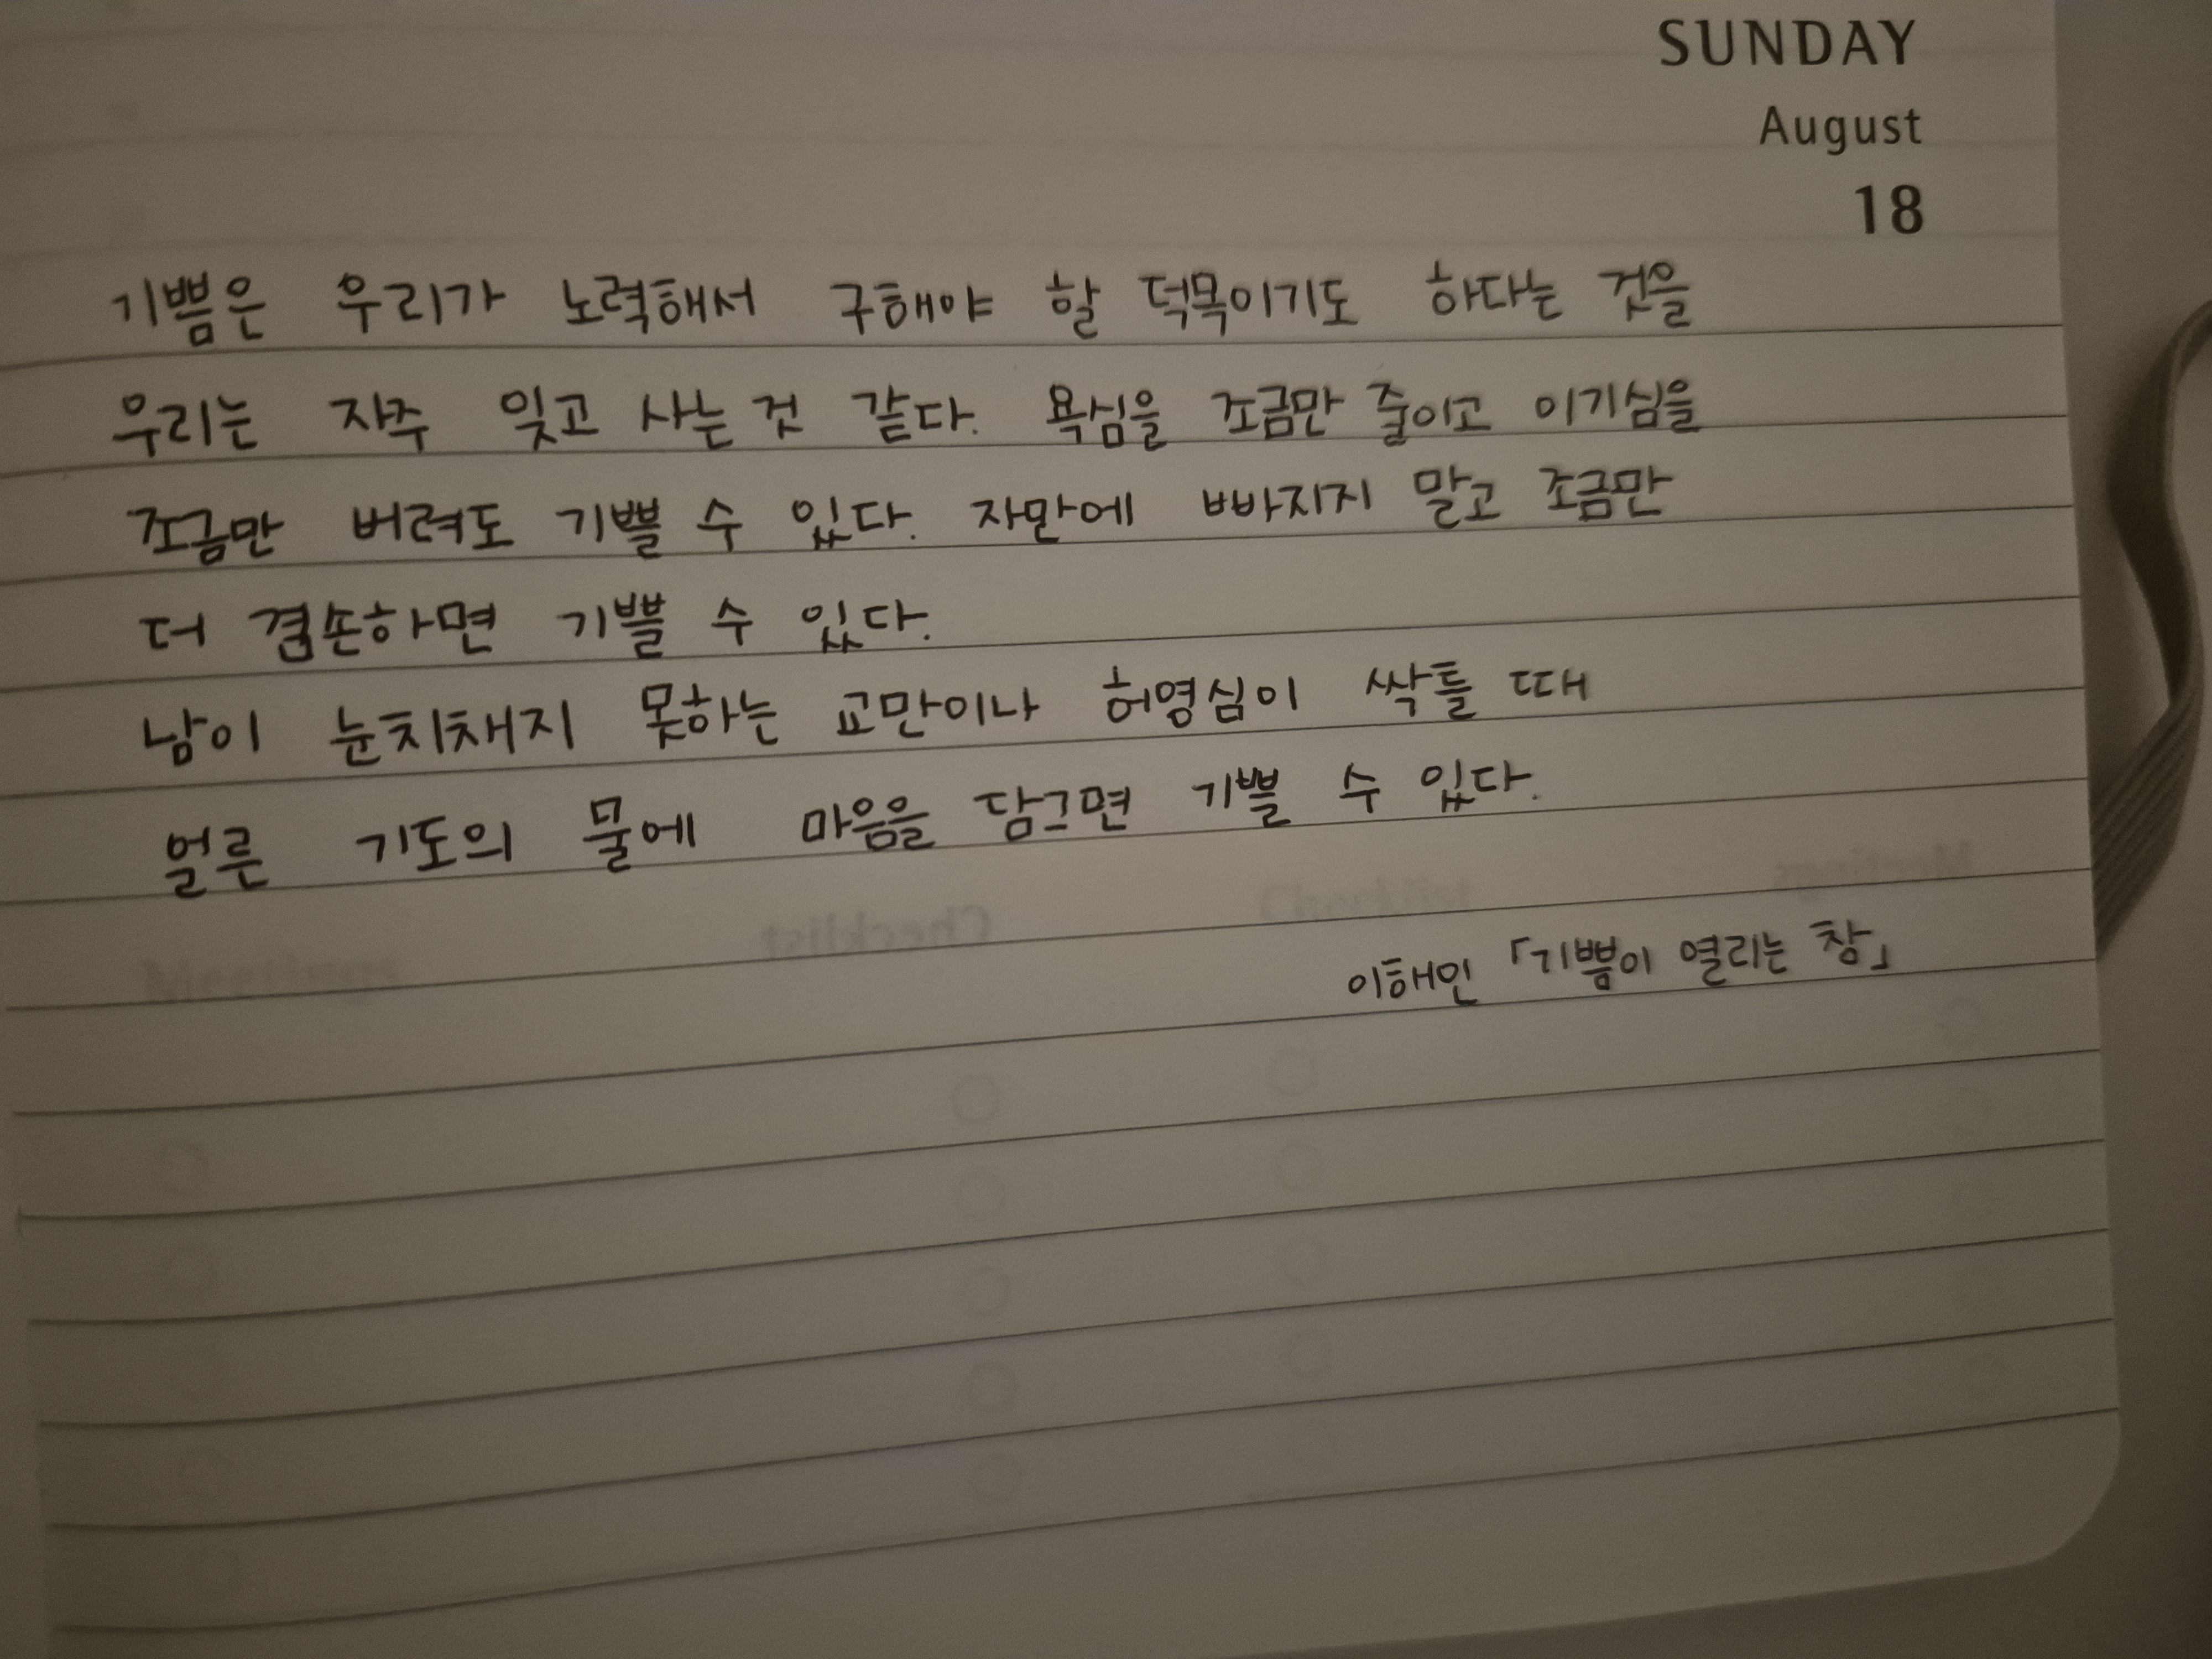 SUNDAY
August
18
기쁨은 우리가 노력해서 구해야 할 덕목이기도 하다는 것을
우리는 자주 잊고 사는 것 같다. 욕심을 조금만 줄이고 이기심을
조금만 버려도 기쁠 수 있다. 자만에 빠지지 말고 조금만
더 겸손하면 기쁠 수 있다.
남이 눈치채지 못하는 교만이나 허영심이 싹틀 때
얼른 기도의 물에 마음을 담그면 기쁠 수 있다.
Meetings Checklist Checklist Meetings
이해인 「기쁨이 열리는 창」